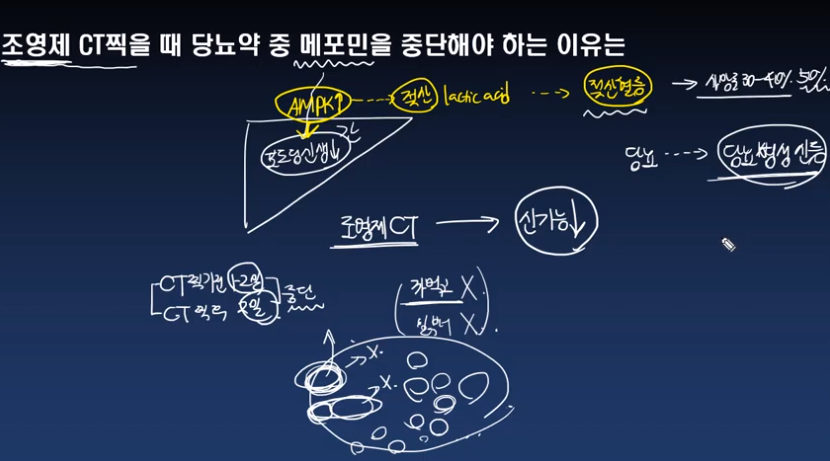 조영제 CT찍을 때 당뇨약 중 메포민을 중단해야 하는 이유는
AMPK↑ ----> 젖산 lactic acid ----> 젖산혈증 → 사망률 30-40%. 50%
포도당신생↓ 간
당뇨 ----> 당뇨병성 신증
조영제 CT → 신기능↓
CT 찍기전 1-2일
CT 찍후 2일
중단
X.
X.
X.
X.